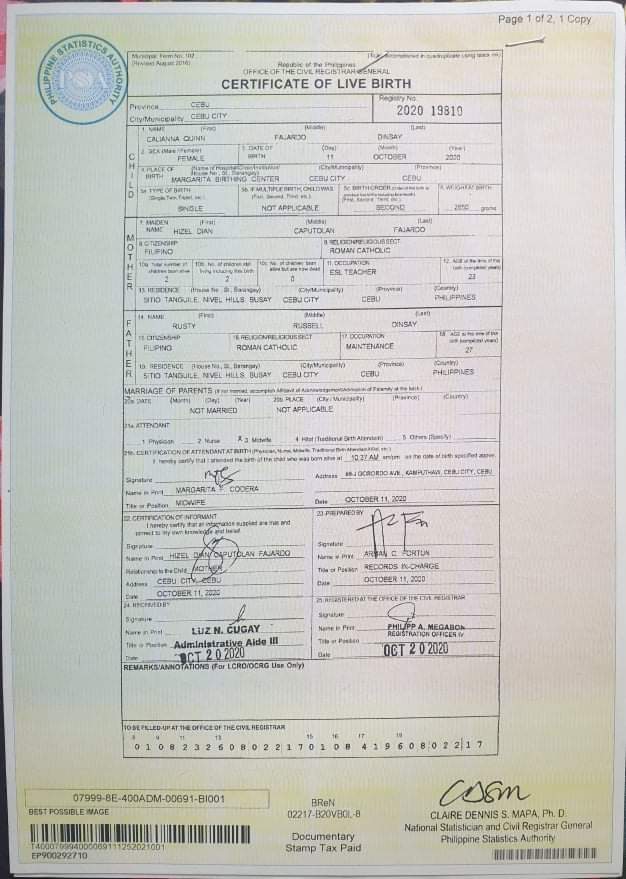 Page 1 of 2, 1 Copy
PHILIPPINE STATISTICS AUTHORITY
PSA
Municipal Form No. 102
(Revised August 2016)
(To be accomplished in quadruplicate using black ink)
Republic of the Philippines
OFFICE OF THE CIVIL REGISTRAR GENERAL
CERTIFICATE OF LIVE BIRTH
Province CEBU
Registry No.
City/Municipality CEBU CITY
2020 19810
CHILD
1. NAME (First) (Middle) (Last)
CALIANNA QUINN FAJARDO DINSAY
2. SEX (Male / Female) 3. DATE OF BIRTH (Day) (Month) (Year)
FEMALE 11 OCTOBER 2020
4. PLACE OF BIRTH (Name of Hospital/Clinic/Institution/ House No., St., Barangay) (City/Municipality) (Province)
MARGARITA BIRTHING CENTER CEBU CITY CEBU
5a. TYPE OF BIRTH (Single, Twin, Triplet, etc.) 5b. IF MULTIPLE BIRTH, CHILD WAS (First, Second, Third, etc.) 5c. BIRTH ORDER (First, Second, Third, etc.) 6. WEIGHT AT BIRTH
SINGLE NOT APPLICABLE SECOND grams
MOTHER
7. MAIDEN NAME (First) (Middle) (Last)
HIZEL DIAN CAPUTOLAN FAJARDO
8. CITIZENSHIP 9. RELIGION/RELIGIOUS SECT
FILIPINO ROMAN CATHOLIC
10a. Total number of children born alive 10b. No. of children still living including this birth 10c. No. of children born alive but are now dead 11. OCCUPATION 12. AGE at the time of this birth (completed years)
2 2 0 ESL TEACHER 23
13. RESIDENCE (House No., St., Barangay) (City/Municipality) (Province) (Country)
SITIO TANGUILE, NIVEL HILLS, BUSAY CEBU CITY CEBU PHILIPPINES
FATHER
14. NAME (First) (Middle) (Last)
RUSTY RUSSELL DINSAY
15. CITIZENSHIP 16. RELIGION/RELIGIOUS SECT 17. OCCUPATION 18. AGE at the time of this birth (completed years)
FILIPINO ROMAN CATHOLIC MAINTENANCE 27
19. RESIDENCE (House No., St., Barangay) (City/Municipality) (Province) (Country)
SITIO TANGUILE, NIVEL HILLS, BUSAY CEBU CITY CEBU PHILIPPINES
MARRIAGE OF PARENTS (If not married, accomplish Affidavit of Acknowledgement/Admission of Paternity at the back.)
20a. DATE (Month) (Day) (Year) 20b. PLACE (City / Municipality) (Province) (Country)
NOT MARRIED NOT APPLICABLE
21a. ATTENDANT
1 Physician 2 Nurse X 3 Midwife 4 Hilot (Traditional Birth Attendant) 5 Others (Specify)
21b. CERTIFICATION OF ATTENDANT AT BIRTH (Physician, Nurse, Midwife, Traditional Birth Attendant/Hilot, etc.)
I hereby certify that I attended the birth of the child who was born alive at 10:37 AM am/pm on the date of birth specified above.
Signature Address GORORDO AVE., KAMPUTHAW, CEBU CITY, CEBU
Name in Print MARGARITA CODERA
Title or Position MIDWIFE Date OCTOBER 11, 2020
22. CERTIFICATION OF INFORMANT
I hereby certify that all information supplied are true and
correct to my own knowledge and belief.
Signature
Name in Print HIZEL DIAN CAPUTOLAN FAJARDO
Relationship to the Child MOTHER
Address CEBU CITY, CEBU
Date OCTOBER 11, 2020
23. PREPARED BY
Signature
Name in Print C. FORTUN
Title or Position RECORDS IN-CHARGE
Date OCTOBER 11, 2020
24. RECEIVED BY
Signature
Name in Print LUZ N. CUGAY
Title or Position Administrative Aide III
Date OCT 20 2020
25. REGISTERED AT THE OFFICE OF THE CIVIL REGISTRAR
Signature
Name in Print PHILIPP A. MEGABON
Title or Position REGISTRATION OFFICER IV
Date OCT 20 2020
REMARKS/ANNOTATIONS (For LCRO/OCRG Use Only)
TO BE FILLED-UP AT THE OFFICE OF THE CIVIL REGISTRAR
8 9 11 13 15 16 17 19
0 1 0 8 2 3 2 6 0 8 0 2 2 1 7 0 1 0 8 4 1 9 6 0 8 0 2 2 1 7
07999-8E-400ADM-00691-BI001
BEST POSSIBLE IMAGE
EP900292710
BReN
02217-B20VB0L-8
Documentary
Stamp Tax Paid
CLAIRE DENNIS S. MAPA, Ph. D.
National Statistician and Civil Registrar General
Philippine Statistics Authority